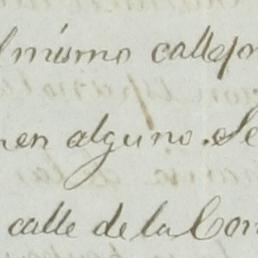 l mismo callejon
nen alguno. Se
calle de la Con